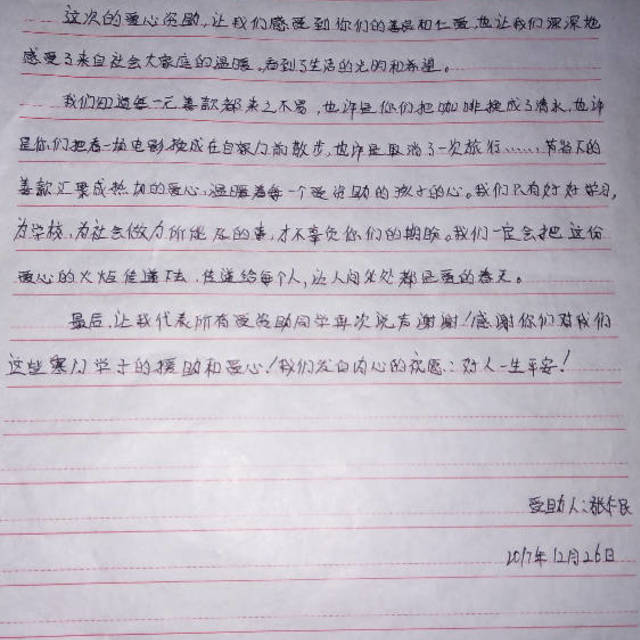 这次的爱心资助,让我们感受到你们的善良和仁爱,也让我们深深地
感受了来自社会大家庭的温暖,看到了生活的光明和希望。
我们知道每一元善款都来之不易,也许是你们把咖啡换成了清水,也许
是你们把看一场电影换成在自家门前散步,也许是取消了一次旅行……节省下的
善款汇聚成热切的爱心,温暖着每一个受资助的孩子的心。我们只有好好学习,
为学校、为社会做力所能及的事,才不辜负你们的期盼。我们一定会把这份
爱心的火炬传递下去,传递给每个人,让人间处处都是爱的春天。
最后,让我代表所有受资助同学再次说声谢谢!感谢你们对我们
这些寒门学子的援助和爱心!我们发自内心的祝愿:好人一生平安!
受助人:张
2017年12月26日